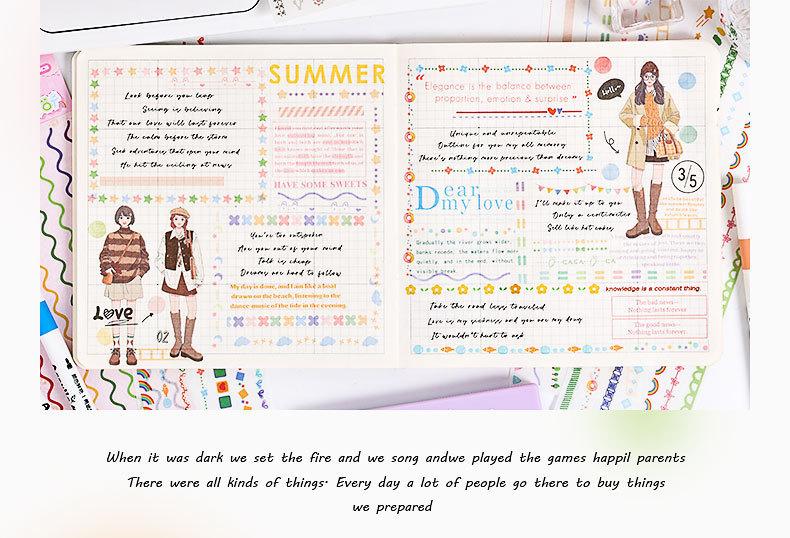 SUMMER
Look before you leap
Seeing is believing
That our love will last forever
The calm before the storm
Seek adventures that open your mind
He hit the ceiling at news
HAVE SOME SWEETS
You're too outspoken
Are you out of your mind
Talk is cheap
Dreams are hard to follow
My day is done, and I am like a boat
drawn on the beach, listening to the
dance-music of the tide in the evening.
Love
02
“
Elegance is the balance between
proportion, emotion & surprise ”
Hello~
Unique and unrepeatable
Outline for you my all memory
There's nothing more precious than dreams
3/5
Dear
my love
I'll make it up to you
Only a centimeter
Sell like hot cakes
Gradually the river grows wider,
banks recede, the waters flow more
quietly, and in the end, without
visible break
knowledge is a constant thing.
Take the road less traveled
Love is my sickness and you are my drug
It wouldn't hurt to ask
The bad news—
Nothing lasts forever
The good news—
Nothing lasts forever
When it was dark we set the fire and we song andwe played the games happil parents
There were all kinds of things. Every day a lot of people go there to buy things
we prepared